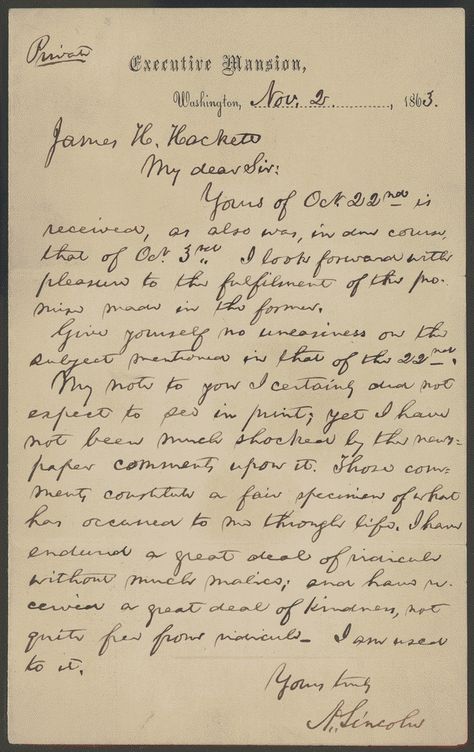 Private
Executive Mansion,
Washington, Nov. 2, 1863.
James H. Hackett
My dear Sir:
Yours of Oct. 22nd is
received, as also was, in due course,
that of Oct. 3rd. I look forward with
pleasure to the fulfilment of the pro-
mise made in the former.
Give yourself no uneasiness on the
subject mentioned in that of the 22nd.
My note to you I certainly did not
expect to see in print; yet I have
not been much shocked by the news-
paper comments upon it. Those com-
ments constitute a fair specimen of what
has occured to me through life. I have
endured a great deal of ridicule
without much malice; and have re-
ceived a great deal of kindness, not
quite free from ridicule. I am used
to it.
Yours truly
A. Lincoln